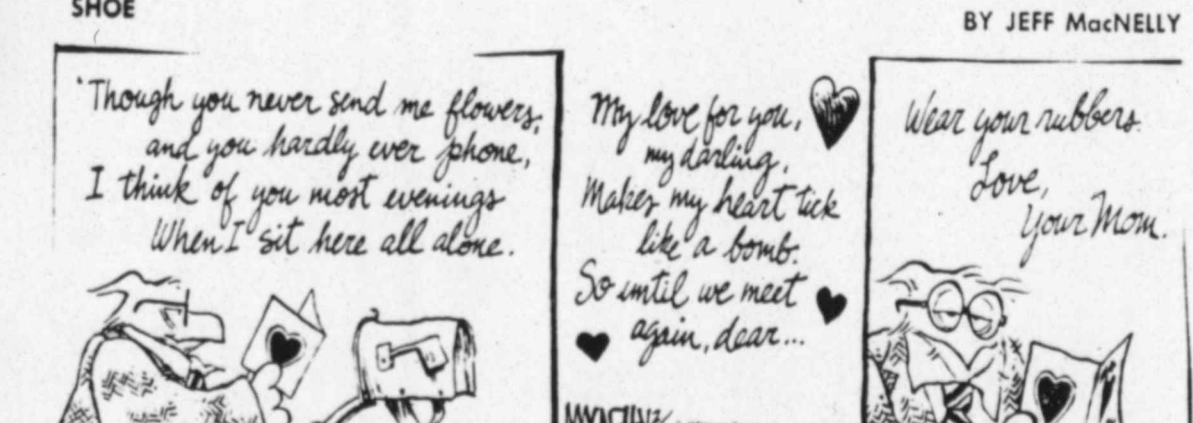 SHOE
BY JEFF MacNELLY
'Though you never send me flowers,
and you hardly ever phone,
I think of you most evenings
When I sit here all alone.
My love for you,
my darling,
Makes my heart tick
like a bomb.
So until we meet
again, dear...
Wear your rubbers.
Love,
Your Mom.